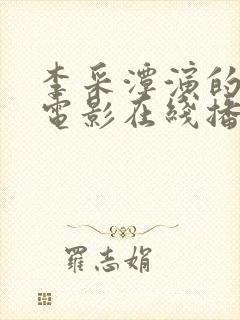 李采潭演的
電影在綫播
羅志娟